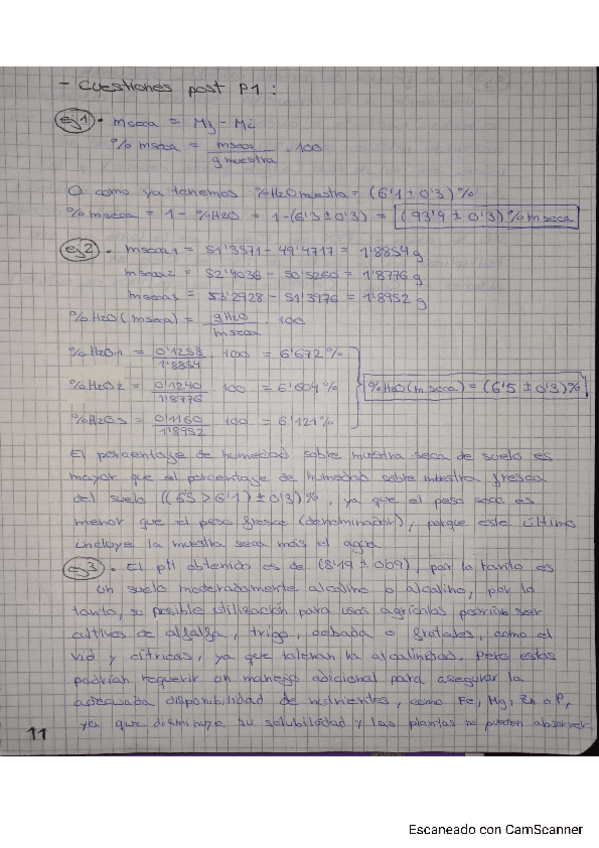 - Cuestiones post P1:
ej1 · mseca = Mf - Mi
% mseca = mseca / g muestra · 100
O como ya tenemos %H2O muestra = (6'1 ± 0'3) %
% mseca = 1 - %H2O = 1-(6'3 ± 0'3) = (93'9 ± 0'3) % mseca
ej2 · mseca1 = 51'3571 - 49'4717 = 1'8854 g
mseca2 = 52'4036 - 50'5260 = 1'8776 g
mseca3 = 53'2928 - 51'3976 = 1'8952 g
%H2O (mseca) = gH2O / mseca · 100
%H2O1 = 0'1258 / 1'8854 · 100 = 6'672%
%H2O2 = 0'1240 / 1'8776 · 100 = 6'604%
%H2O (m seca) = (6'5 ± 0'3)%
%H2O3 = 0'1160 / 1'8952 · 100 = 6'121%
El porcentaje de humedad sobre muestra seca de suelo es
mayor que el porcentaje de humedad sobre muestra fresca
del suelo ((6'5 > 6'1) ± 0'3)%, ya que el peso seco es
menor que el peso fresco (denominador), porque este último
incluye la muestra seca más el agua.
ej3 · El pH obtenido es de (8'19 ± 0'09), por lo tanto es
un suelo moderadamente alcalino o alcalino, por lo
tanto, su posible utilización para usos agrícolas podrían ser
cultivos de alfalfa, trigo, cebada o frutales, como el
vid y cítricos, ya que toleran la alcalinidad. Pero estos
podrían requerir un manejo adicional para asegurar la
adecuada disponibilidad de nutrientes, como Fe, Mg, Zn o P,
ya que disminuye su solubilidad y las plantas no pueden absorver
11
Escaneado con CamScanner